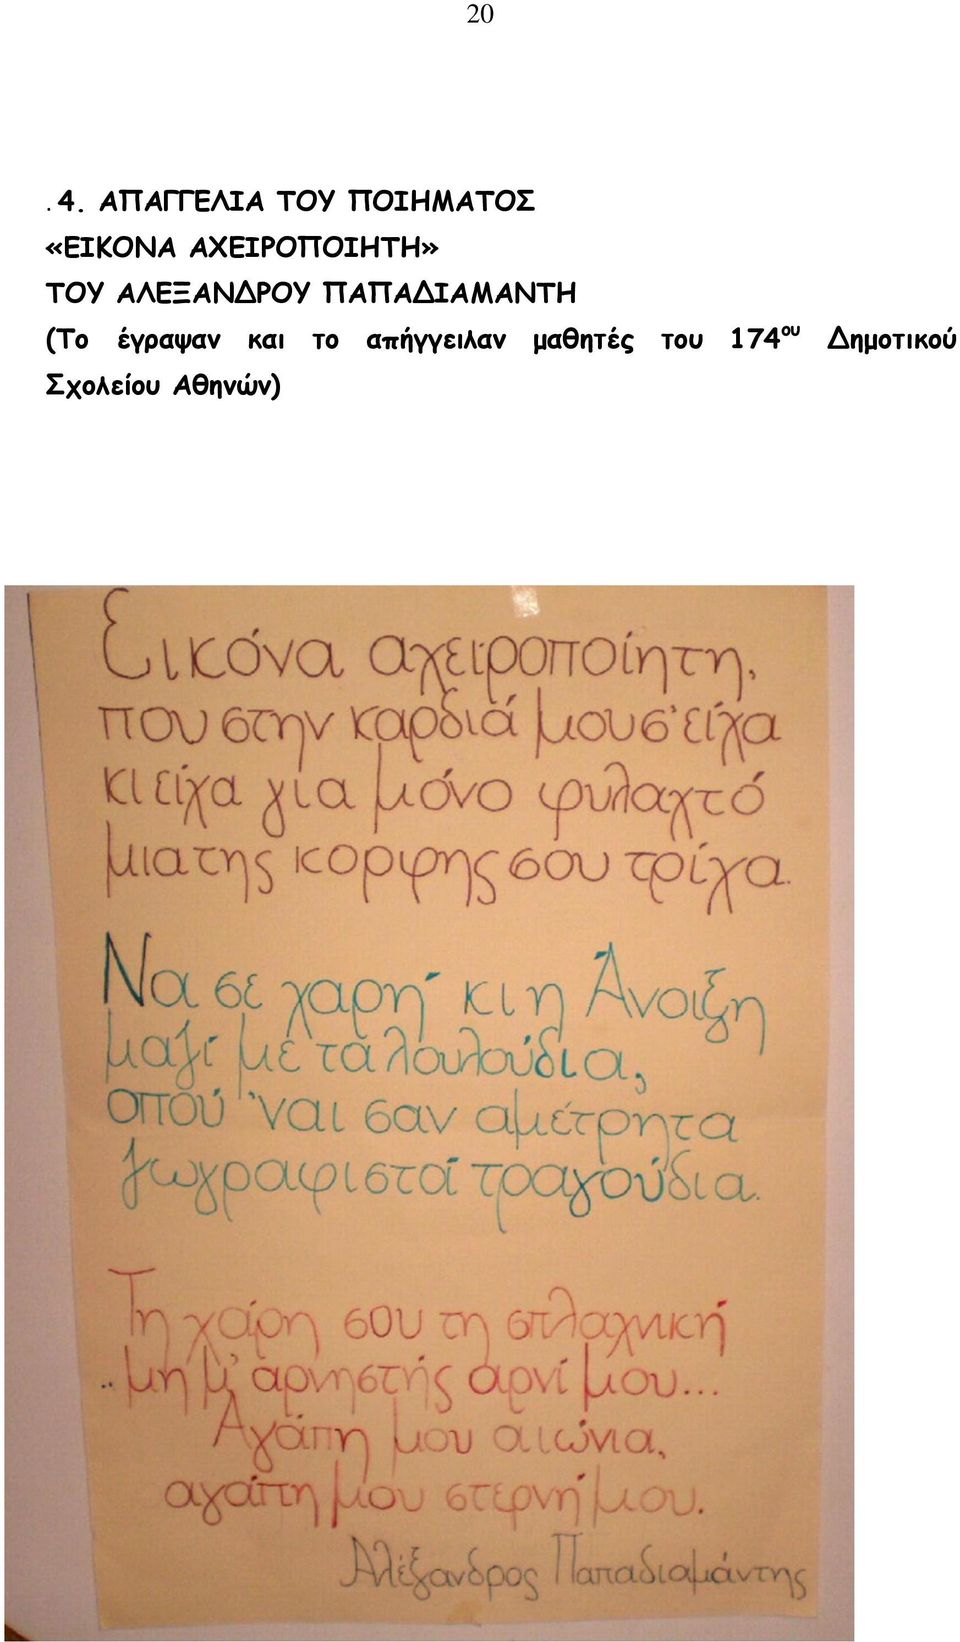 20
.4. ΑΠΑΓΓΕΛΙΑ ΤΟΥ ΠΟΙΗΜΑΤΟΣ
«ΕΙΚΟΝΑ ΑΧΕΙΡΟΠΟΙΗΤΗ»
ΤΟΥ ΑΛΕΞΑΝΔΡΟΥ ΠΑΠΑΔΙΑΜΑΝΤΗ
(Το έγραψαν και το απήγγειλαν μαθητές του 174ου Δημοτικού
Σχολείου Αθηνών)
Εικόνα αχειροποίητη,
που στην καρδιά μου σ' είχα
κι είχα για μόνο φυλαχτό
μια της κορφης σου τρίχα.
Να σε χαρή κι η Άνοιξη
μαζί με τα λουλούδια,
οπού 'ναι σαν αμέτρητα
ζωγραφιστά τραγούδια.
Τη χάρη σου τη σπλαχνική
..μη μ' αρνηστής αρνί μου...
Αγάπη μου αιώνια,
αγάπη μου στερνή μου.
Αλέξανδρος Παπαδιαμάντης